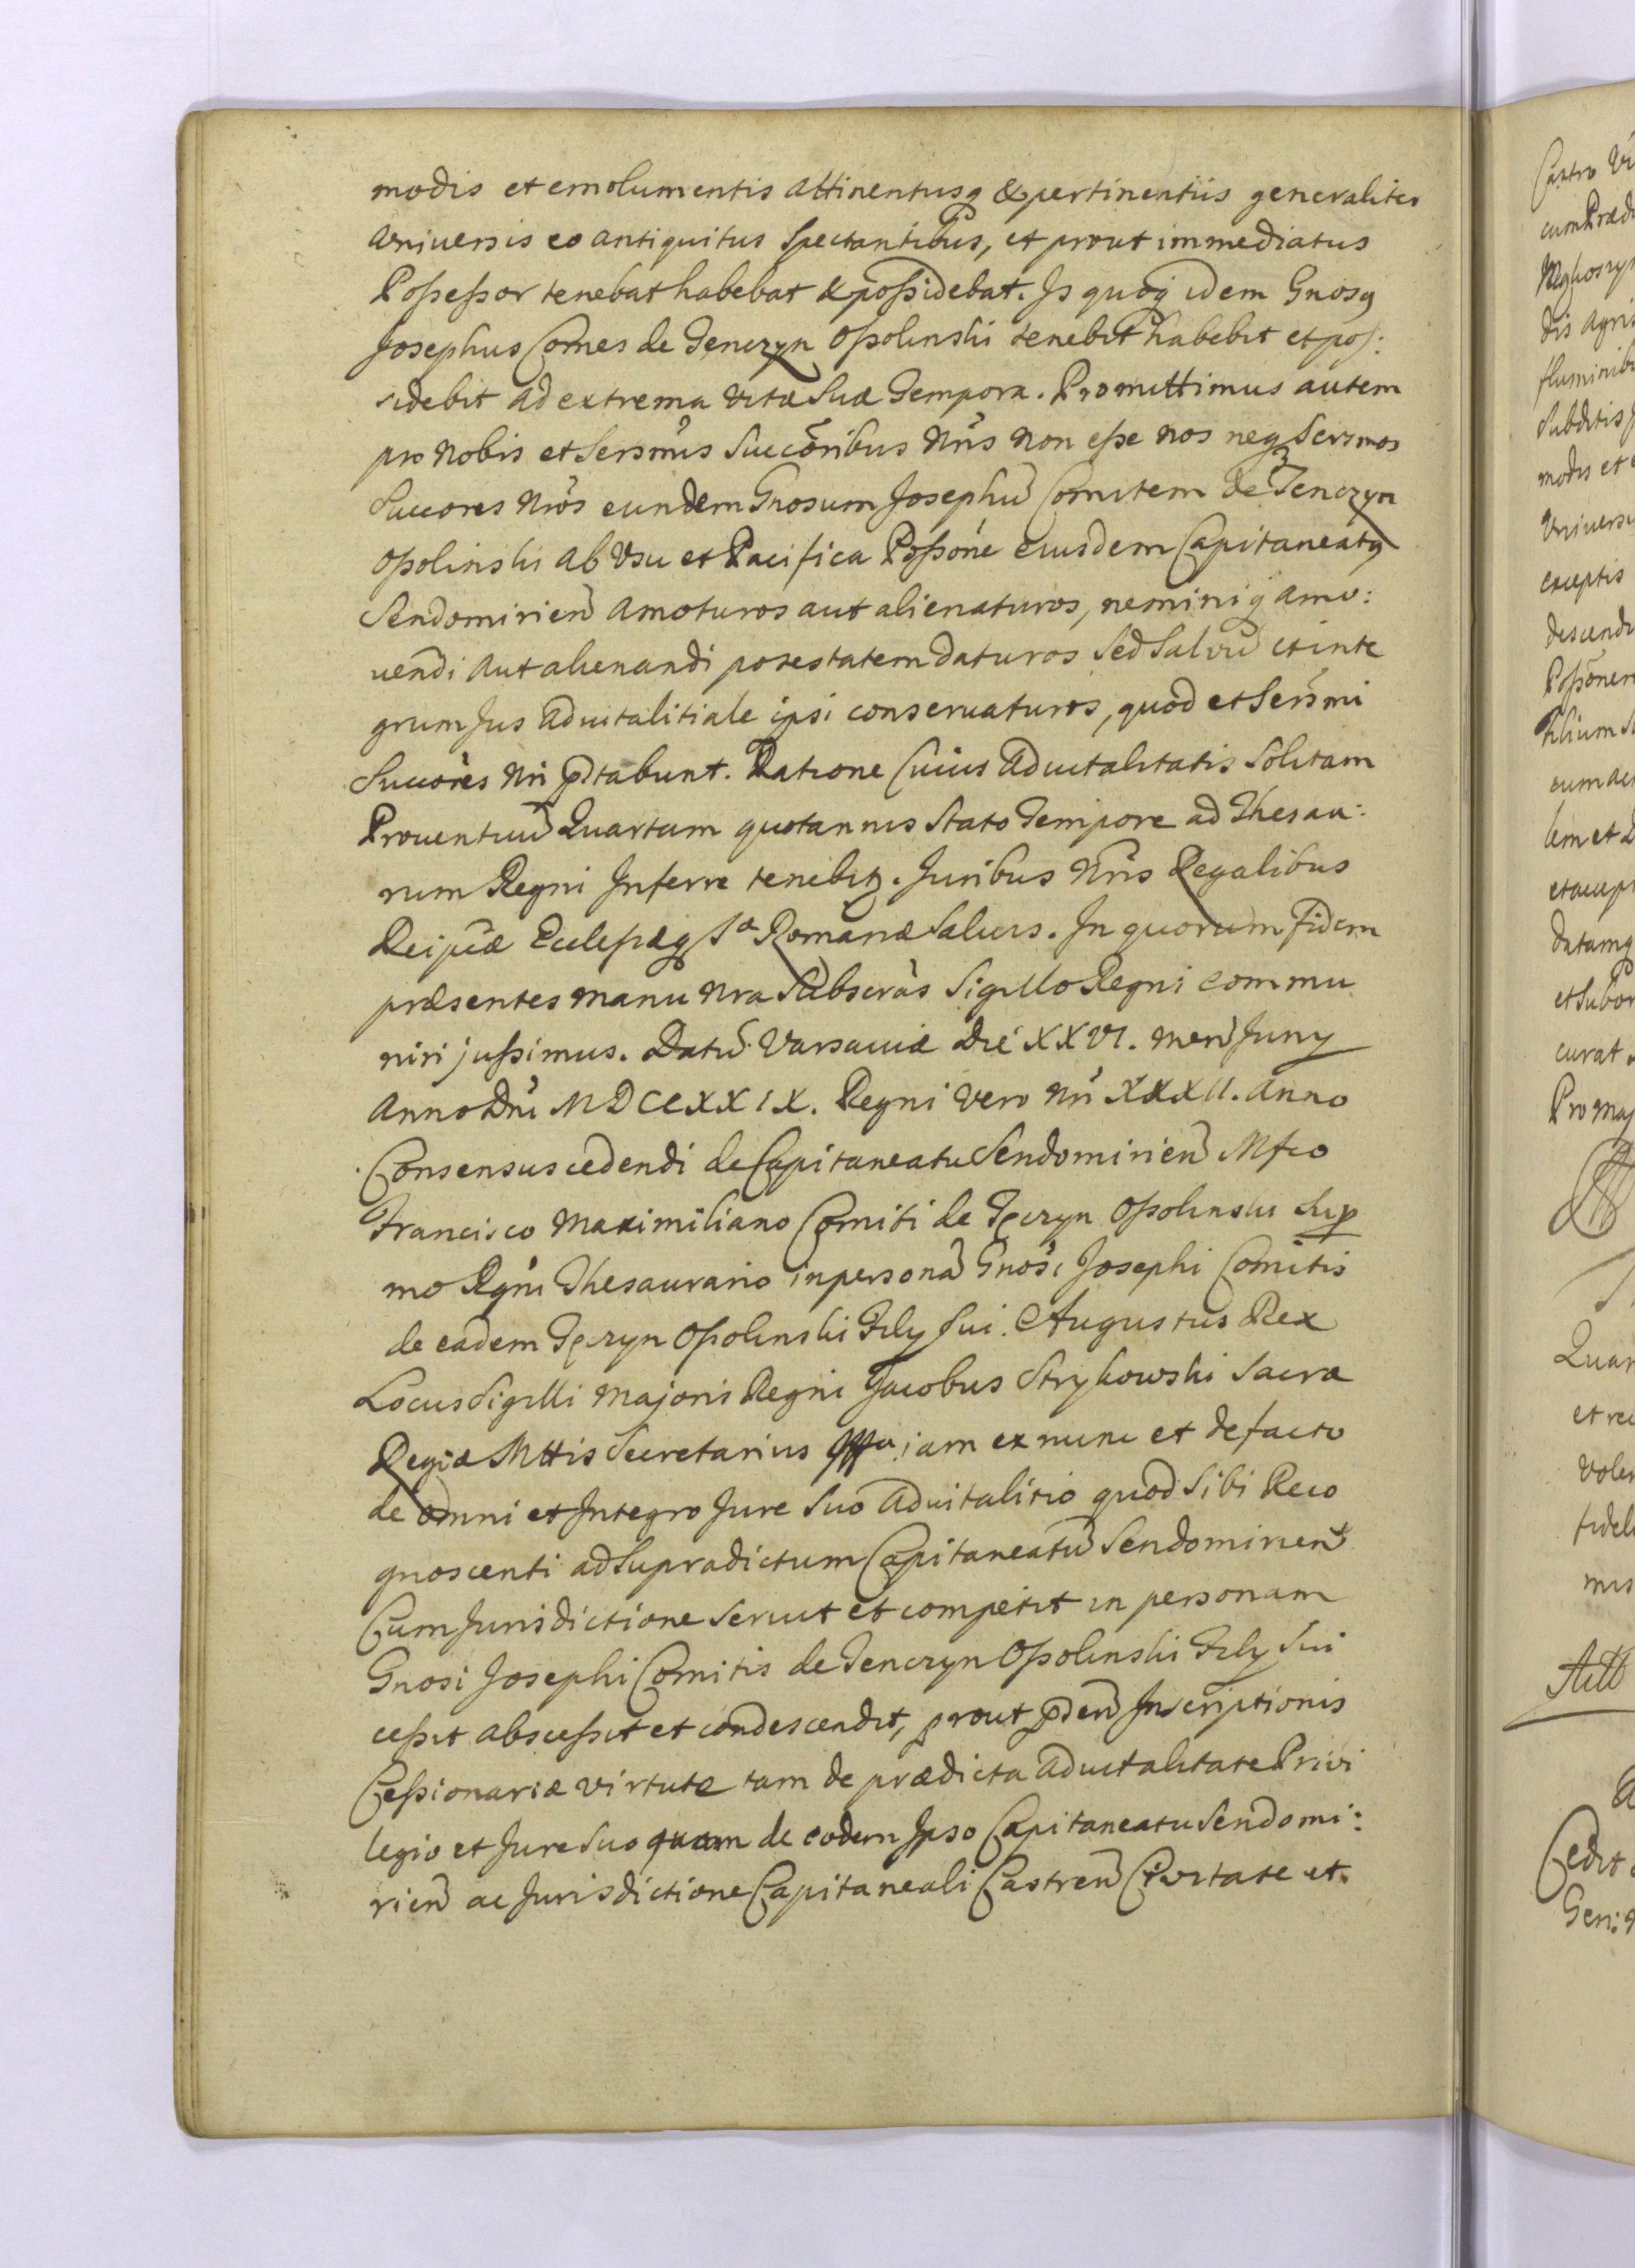 modis et emolumentis attinentusq & pertinentiis generaliter
Universis eo antiquitus Spectantibus, et prout immediatus
Poßeßor tenebat habebat & poßidebat. Is quoq idem Gnosq
Josephus Comes de Tenczyn Oßolinski tenebit habebit et pos:
sidebit ad extrema vitæ Suæ Tempora. Promittimus autem
pro Nobis et Sersmis Succoribus Nris Non eße nos neq Sersmos
Succores Nros eundem Gnosum Josephū Comitem de Tenczyn
Oßolinski ab Usu et Pacifica Poßone eiusdem Capitaneatq
Sendomirien amoturos aut alienaturos, neminiq amo:
uendi aut alienandi potestatem daturos Sed Salvū et inte
grum Jus aduitalitiale ipsi conseruaturos, quod et Sersmi
Succores Nri pstabunt. Ratione Cuius aduitalitatis Solitam
Prouentuū Quartam quotannis Stato Tempore ad Thesau:
rum Regni Inferre tenebitq. Juribus Nris Regalibus
Reipcæ Eccleßæq Sæ Romanæ Saluis. In quorum Fidem
præsentes manu Nra Subscras Sigillo Regni commu
niri jußimus. Datū Varsauiæ Die XXVI. men Juny
Anno Dni MDCCXXIX. Regni Vero Nri XXXII. anno
Consensus cedendi de Capitaneatu Sendomirien Mfco
Francisco Maximiliano Comiti de Tęczyn Oßolinski Sup
mo Rgni Thesaurario in personā Gnosi Josephi Comitis
de eadem Tęczyn Oßolinski Fily Sui. Augustus Rex
Locus Sigilli Majoris Regni Jacobus Strykowski Sacræ
Regiæ Mttis Secretarius iam ex nunc et de facto
de omni et Integro Jure Suo aduitalitio quod Sibi Reco
gnoscenti ad Supradictum Capitaneatū Sendomirien
Cum Jurisdictione Seruit et competit in personam
Gnosi Josephi Comitis de Tenczyn Oßolinski Fily Sui
ceßit absceßit et condescendit, prout pden Inscriptionis
Ceßionariæ virtute tam de prædicta aduitalitate Privi
legio et Jure Suo quam de eodem Ipso Capitaneatu Sendomi:
rien ac Jurisdictione Capitaneali Castren Civitate et